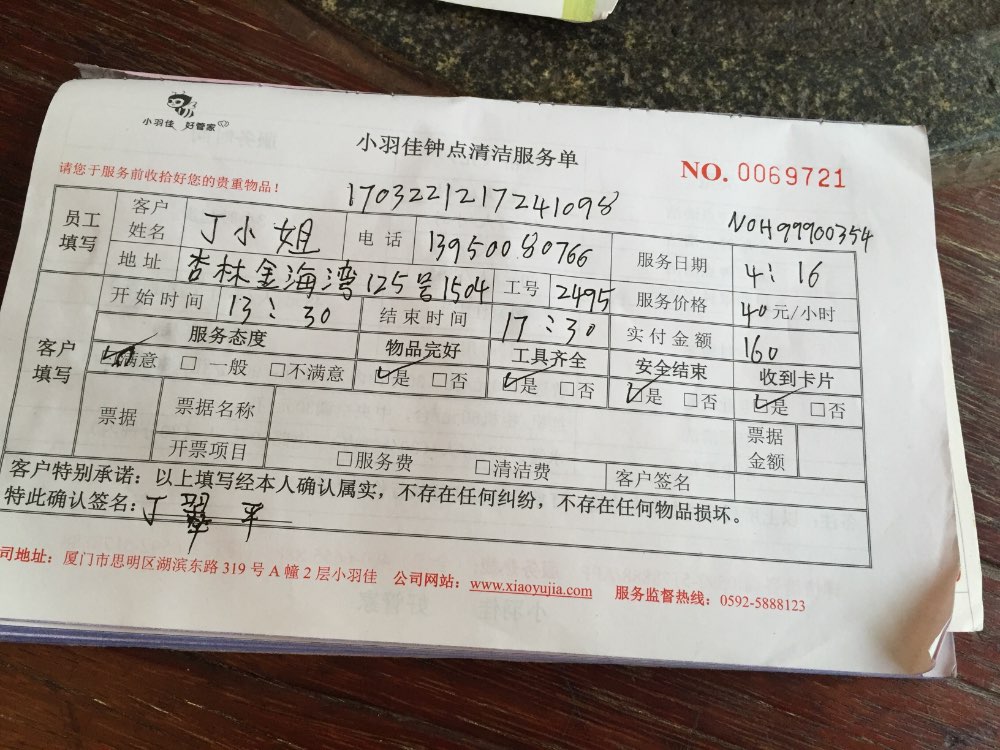 小羽佳 好管家
小羽佳钟点清洁服务单
NO. 0069721
请您于服务前收拾好您的贵重物品！
1703221217241098
NOH99900354
员工填写 客户姓名 丁小姐 电话 13950080766 服务日期 4：16
地址 杏林金海湾125号1504 工号 2495 服务价格 40元/小时
开始时间 13：30 结束时间 17：30 实付金额 160
客户填写 服务态度 物品完好 工具齐全 安全结束 收到卡片
☑满意 □一般 □不满意 ☑是 □否 ☑是 □否 ☑是 □否 ☑是 □否
票据 票据名称 票据金额
开票项目 □服务费 □清洁费 客户签名
客户特别承诺：以上填写经本人确认属实，不存在任何纠纷，不存在任何物品损坏。
特此确认签名：丁翠平
司地址：厦门市思明区湖滨东路319号A幢2层小羽佳 公司网站：www.xiaoyujia.com 服务监督热线：0592-5888123